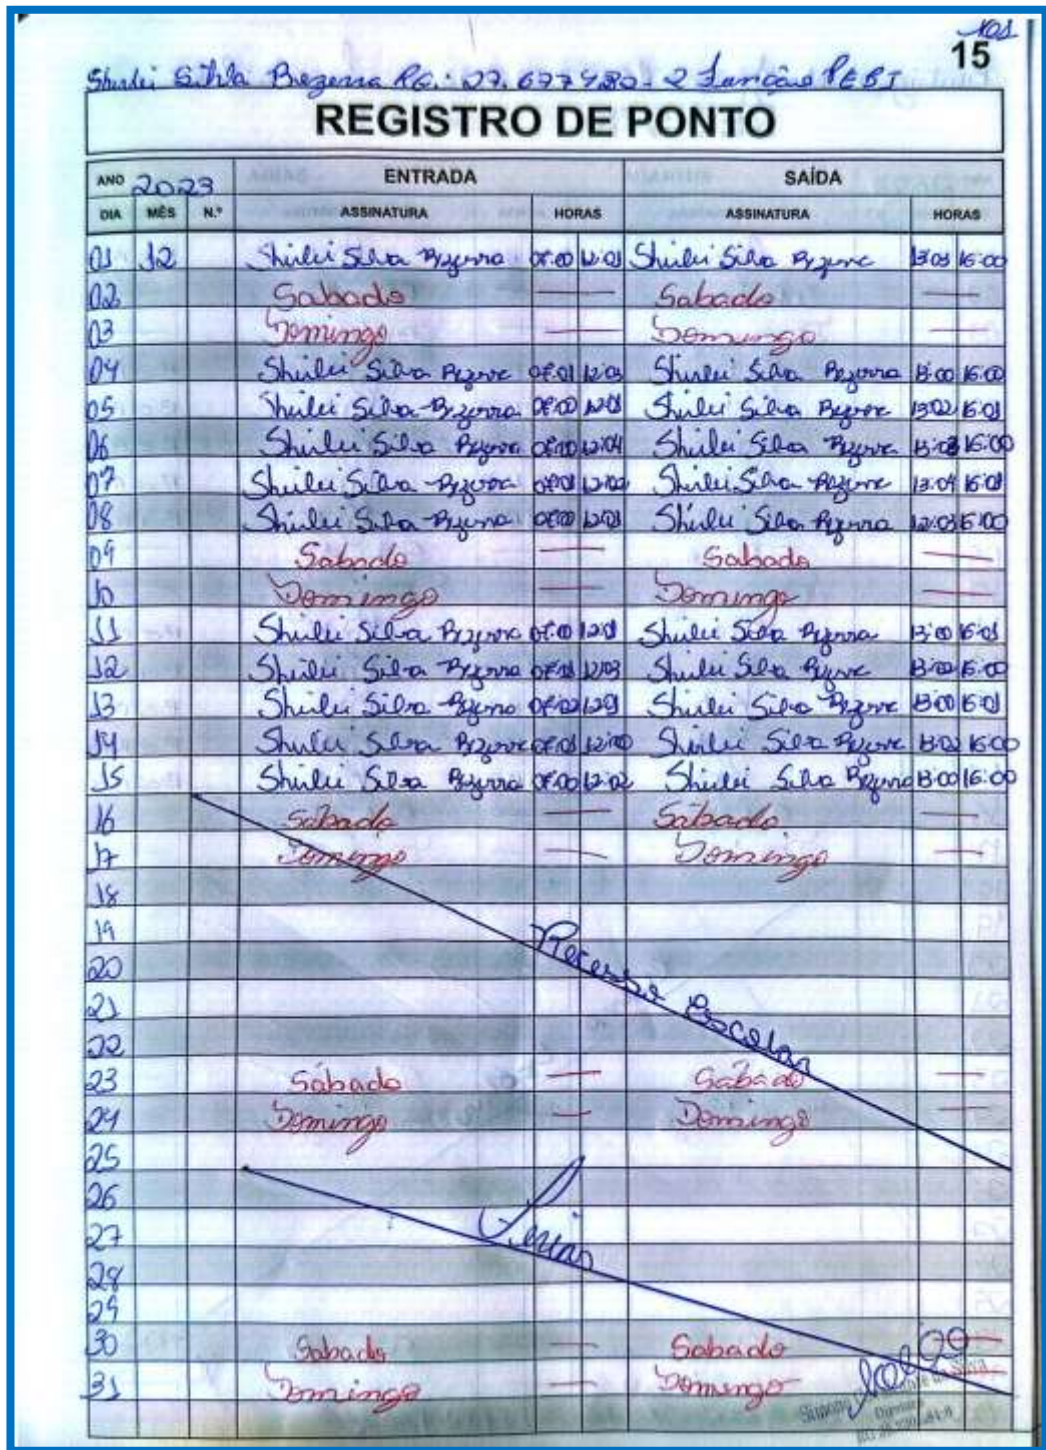 101
15
Shirlei Silva Bezerra RG.: 27.677480-2 Função PEBI
REGISTRO DE PONTO
ANO 2023 ENTRADA SAÍDA
DIA MÊS N.º ASSINATURA HORAS ASSINATURA HORAS
01 12 Shirlei Silva Bezerra 08:00 12:01 Shirlei Silva Bezerra 13:01 16:00
02 Sabado — Sabado —
03 Domingo — Domingo —
04 Shirlei Silva Bezerra 08:01 12:03 Shirlei Silva Bezerra 13:00 16:00
05 Shirlei Silva Bezerra 08:00 12:01 Shirlei Silva Bezerra 13:02 16:01
06 Shirlei Silva Bezerra 08:00 12:04 Shirlei Silva Bezerra 16:00
07 Shirlei Silva Bezerra 08:01 12:02 Shirlei Silva Bezerra 13:04 16:01
08 Shirlei Silva Bezerra 08:00 12:01 Shirlei Silva Bezerra 12:03 16:00
09 Sabado — Sabado —
10 Domingo — Domingo —
11 Shirlei Silva Bezerra 08:00 12:01 Shirlei Silva Bezerra 13:00 16:01
12 Shirlei Silva Bezerra 08:01 12:03 Shirlei Silva Bezerra 13:02 16:00
13 Shirlei Silva Bezerra 08:02 12:01 Shirlei Silva Bezerra 13:00 16:01
14 Shirlei Silva Bezerra 08:01 12:00 Shirlei Silva Bezerra 13:02 16:00
15 Shirlei Silva Bezerra 08:00 12:02 Shirlei Silva Bezerra 13:00 16:00
16 Sabado — Sabado —
17 Domingo — Domingo —
18
19
20 Recesso Escolar
21
22
23 Sábado — Sábado —
24 Domingo — Domingo —
25
26
27 Ferias
28
29
30 Sabado — Sabado —
31 Domingo — Domingo —
Diretora